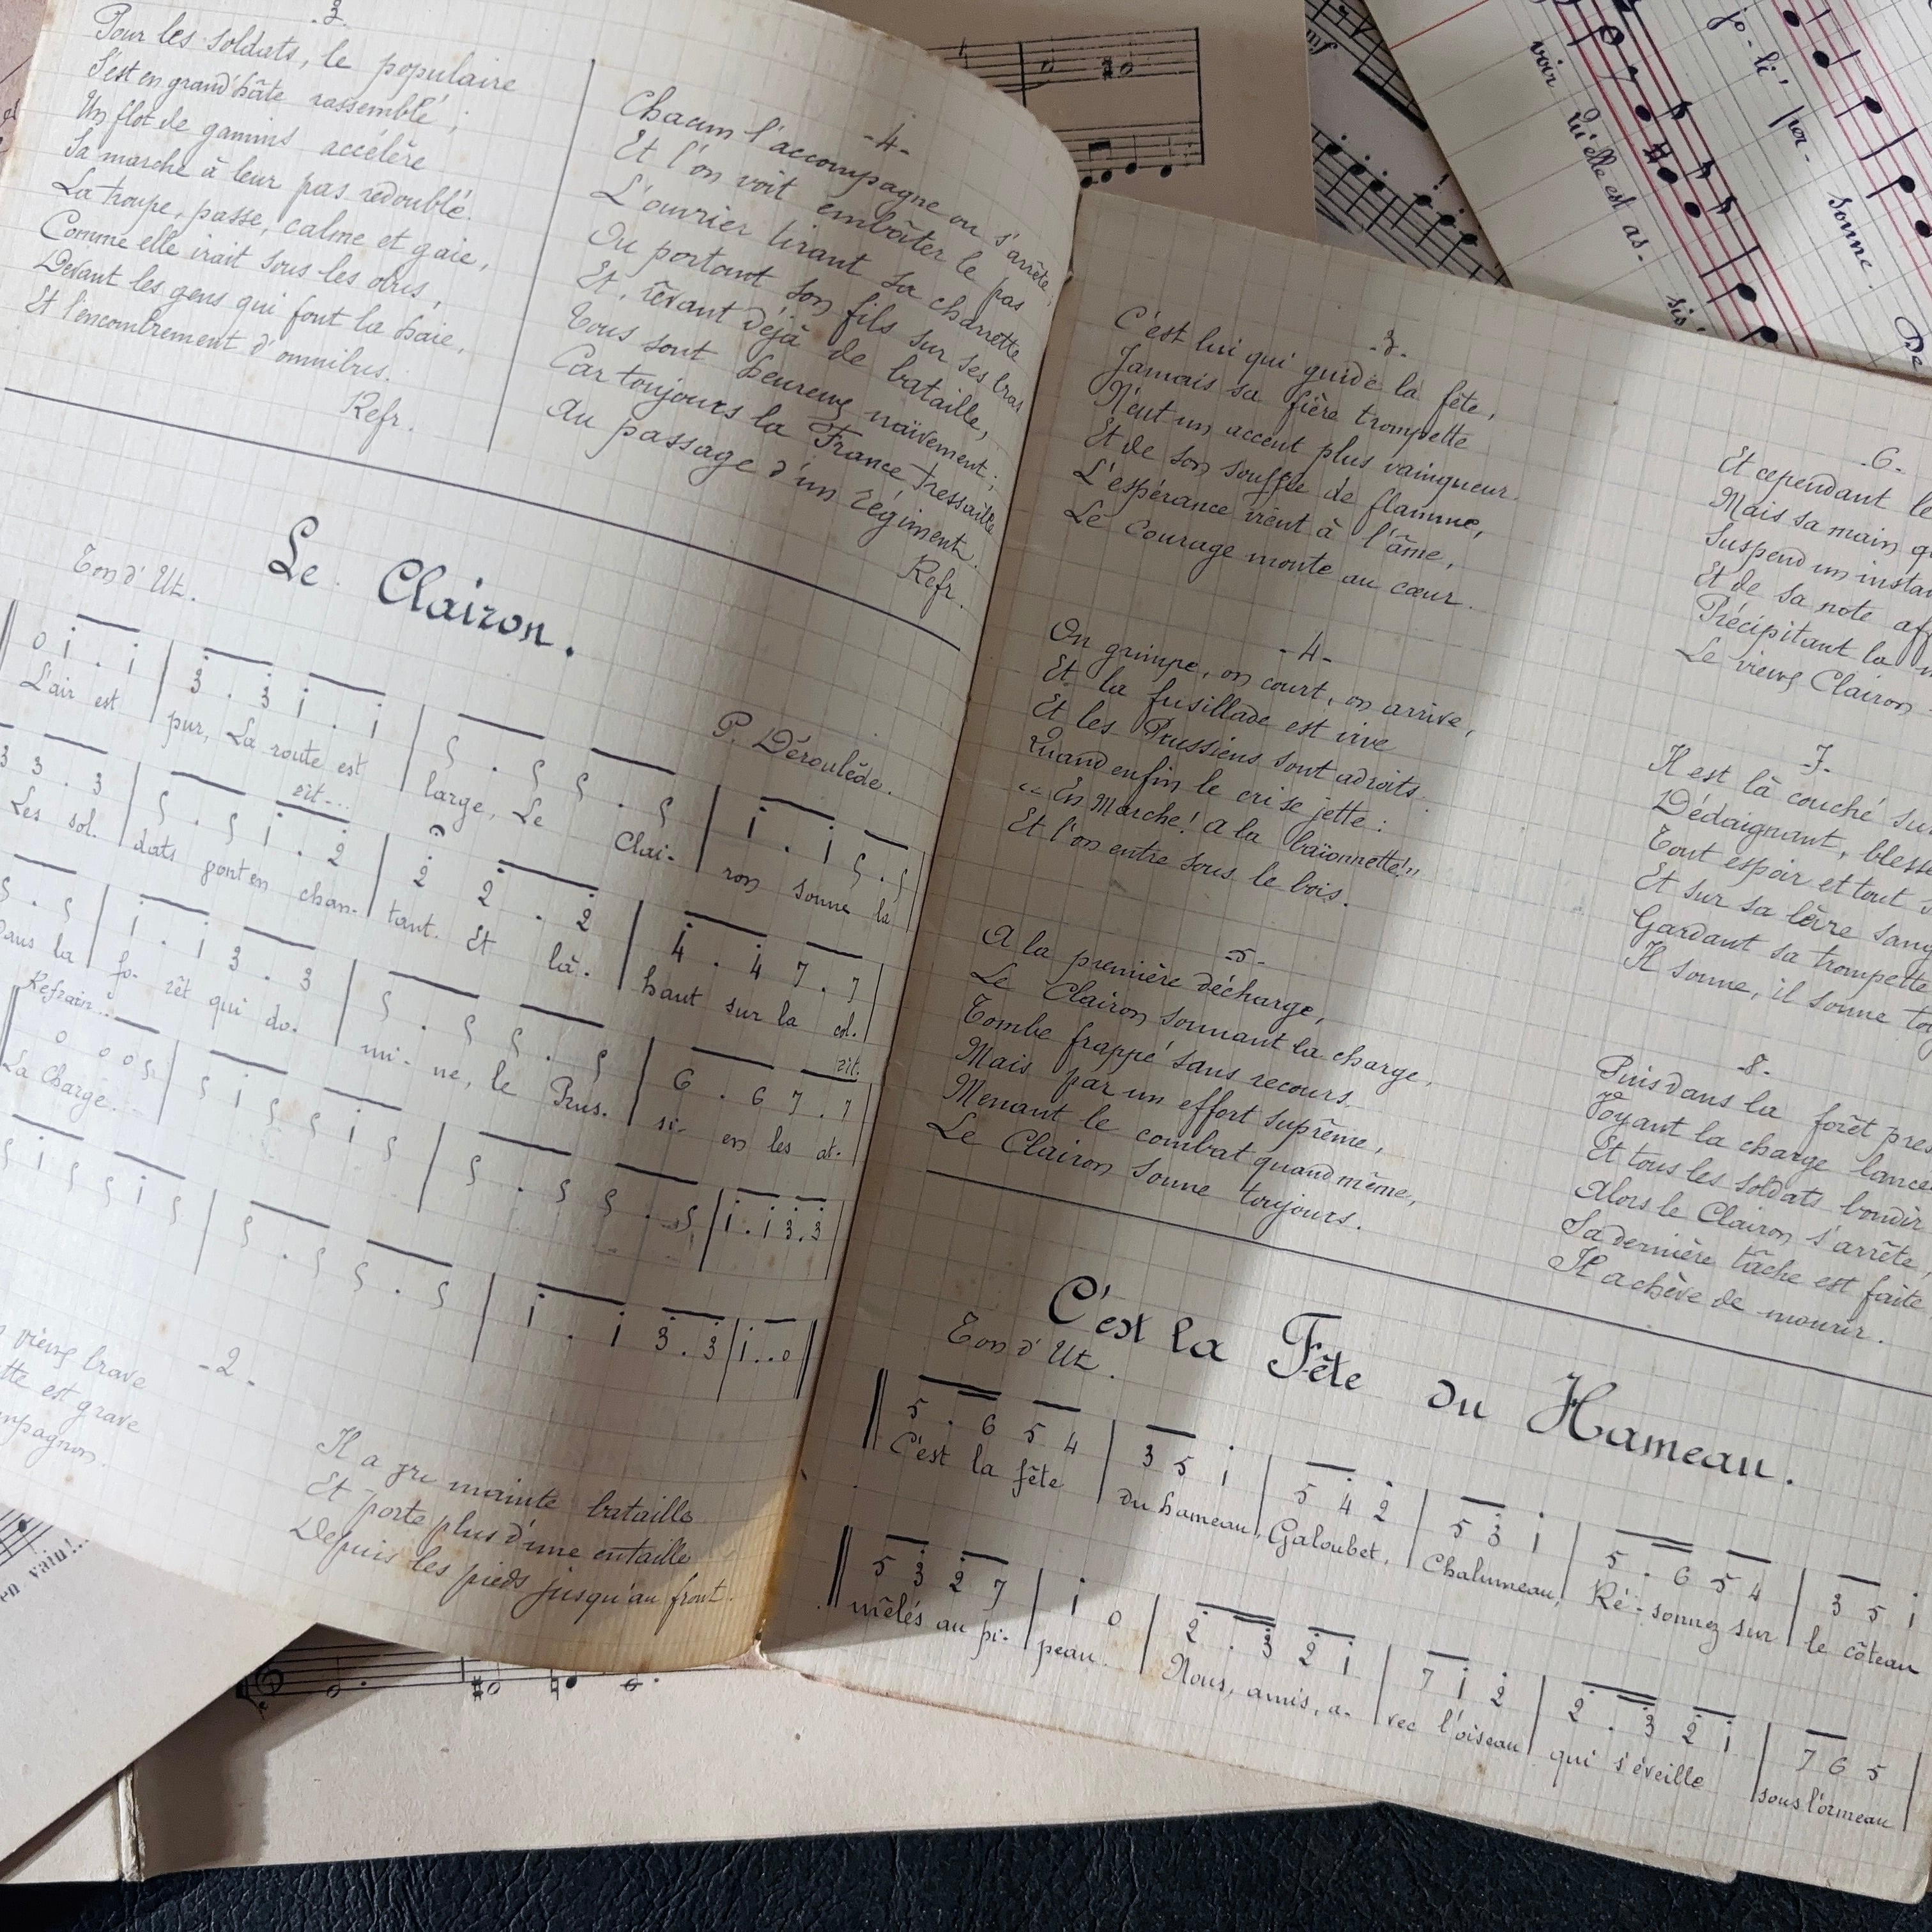 -3-
Pour les soldats, le populaire
S'est en grand hâte rassemblé ;
Un flot de gamins accélère
Sa marche à leur pas redoublé.
La troupe, passe, calme et gaie,
Comme elle irait sous les obus,
Devant les gens qui font la haie,
Et l'encombrement d'omnibus.
Refr.
-4-
Chacun l'accompagne ou s'arrête ;
Et l'on voit emboîter le pas
L'ouvrier tirant sa charrette
Ou portant son fils sur ses bras
Et, rêvant déjà de bataille,
Tous sont heureux naïvement ;
Car toujours la France tressaille
Au passage d'un régiment.
Refr.
Le Clairon.
Ton d'Ut.
P. Déroulède.
L'air est pur, La route est large, Le Clai- ron sonne la
rit...
Les sol. dats vont en chan- tant. Et là- haut sur la col.
Dans la fo- rêt qui do. mi- ne, le Prus. si- en les at.
rit.
Refrain...
La Charge...
vieux brave
est grave
-2-
Il a vu mainte bataille
Et porte plus d'une entaille
Depuis les pieds jusqu'au front.
-3-
C'est lui qui guide la fête,
Jamais sa fière trompette
N'eut un accent plus vainqueur.
Et de son souffle de flamme,
L'espérance vient à l'âme,
Le courage monte au cœur.
-4-
On grimpe, on court, on arrive,
Et la fusillade est vive
Et les Prussiens sont adroits.
Quand enfin le cri se jette :
"En Marche! A la baïonnette!"
Et l'on entre sous le bois.
-5-
A la première décharge,
Le Clairon sonnant la charge,
Tombe frappé sans recours.
Mais par un effort suprême,
Menant le combat quand même,
Le Clairon sonne toujours.
-6-
Et cependant le
Mais sa main
Suspend un
Et de sa note
Précipitant la
Le vieux Clairon
-7-
Il est là couché
Dédaignant,
Tout espoir et tout
Et sur sa lèvre
Gardant sa trompette
Il sonne, il sonne
-8-
Puis dans la forêt
Voyant la charge
Et tous les soldats bondir
Alors le Clairon s'arrête,
Sa dernière tâche est faite
Il achève de mourir.
C'est la Fête du Hameau.
Ton d'Ut.
5 . 6 5 4 | 3 5 i | 5 4 2 | 5 3 i | 5 . 6 5 4 | 3 5 i
C'est la fête du hameau, Galoubet, Chalumeau, Ré- sonnez sur le côteau
5 3 2 7 | i 0 | 2 . 3 2 i | 7 i 2 | 2 . 3 2 i | 7 6 5
mêlés au pi- peau. Nous, amis, a- vec l'oiseau qui s'éveille sous l'ormeau
mf
voir qu'elle est as- sis'
jo- li' per- sonne. De
en vain!..